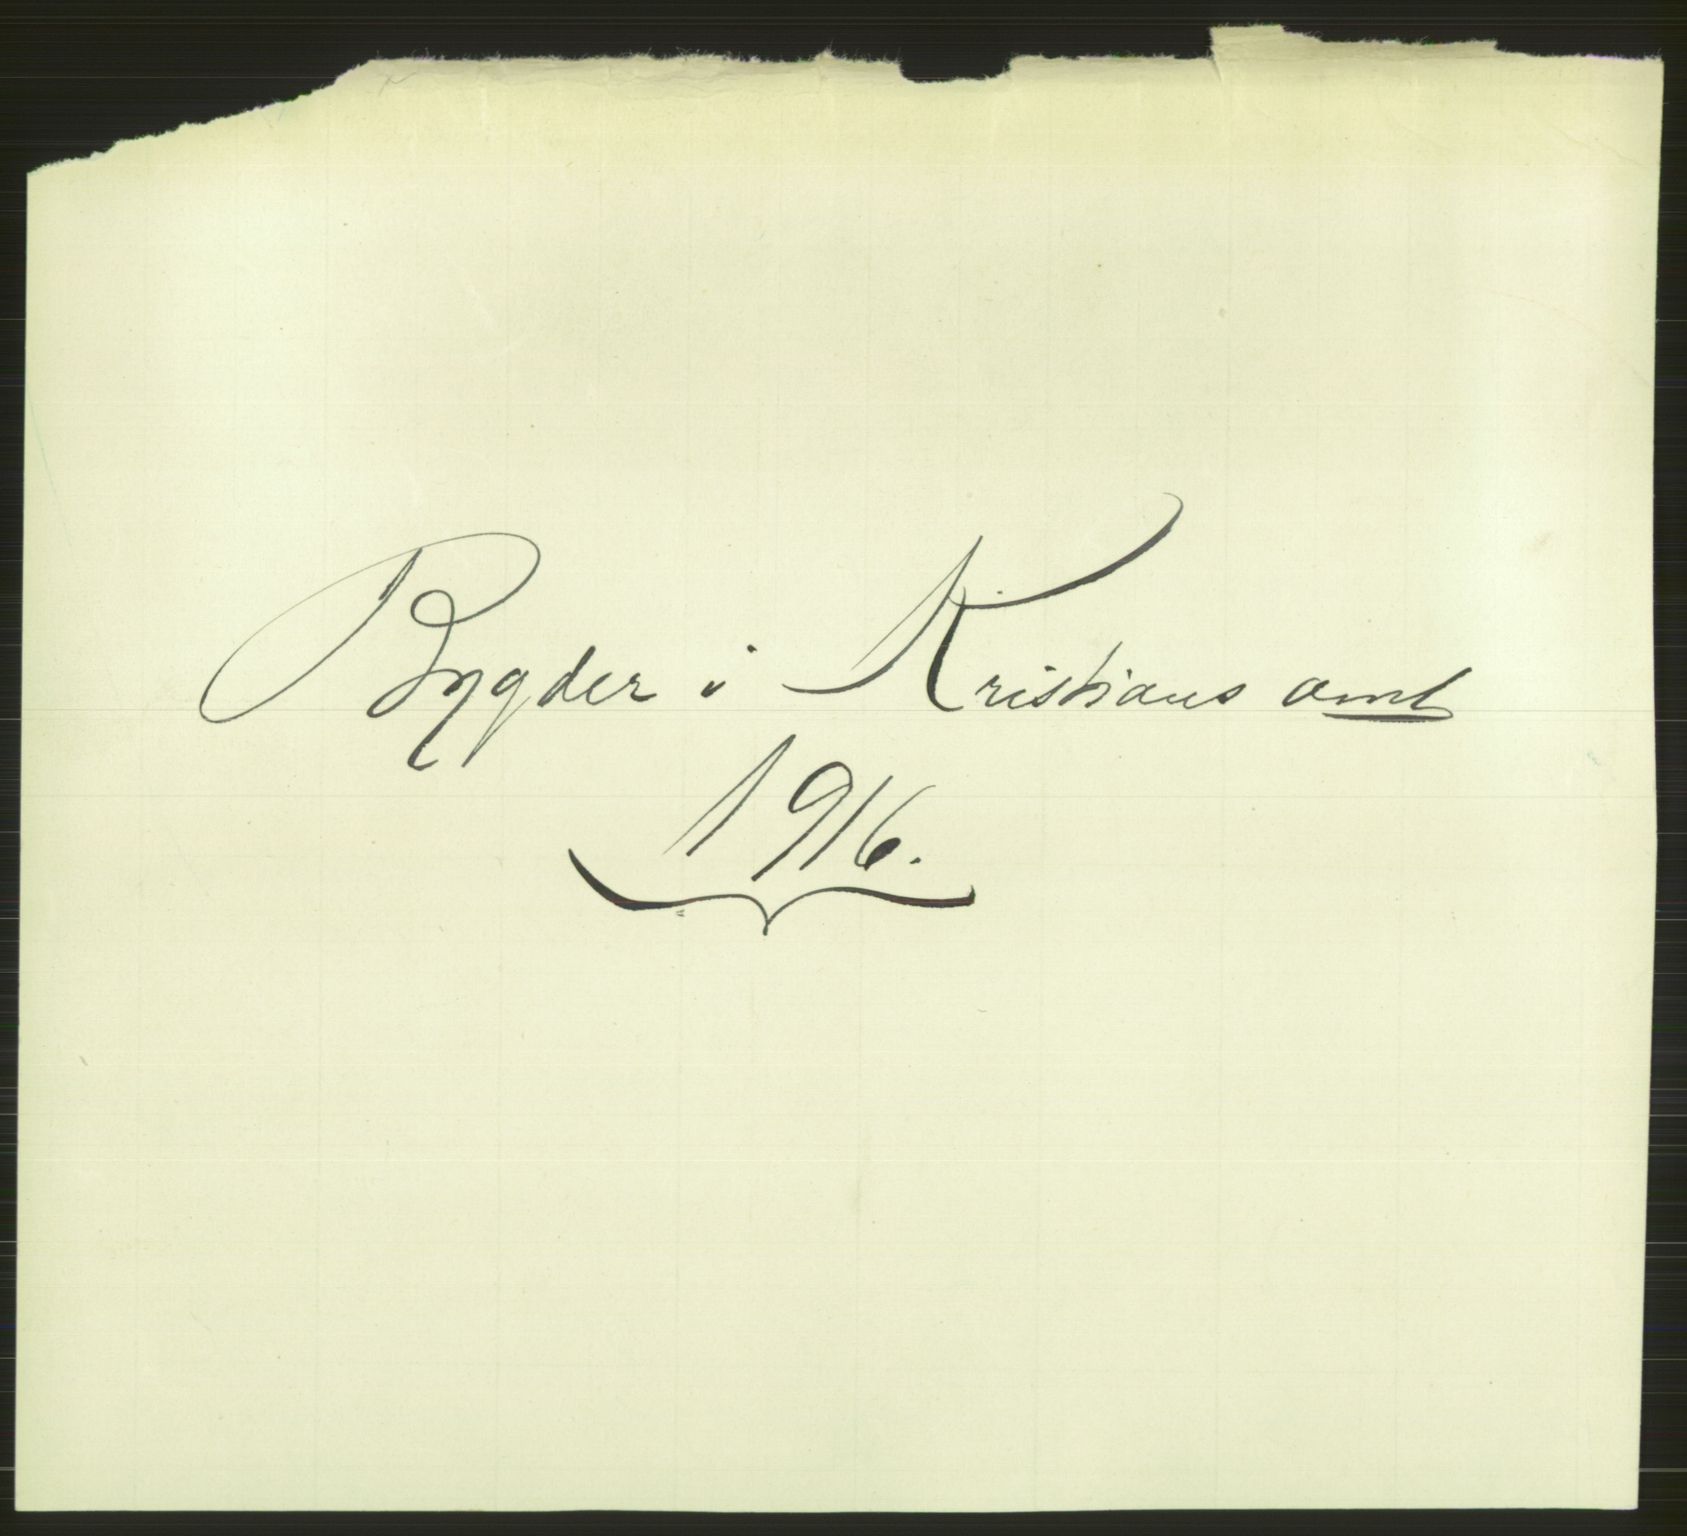 Bygder i Kristians amt
1916.